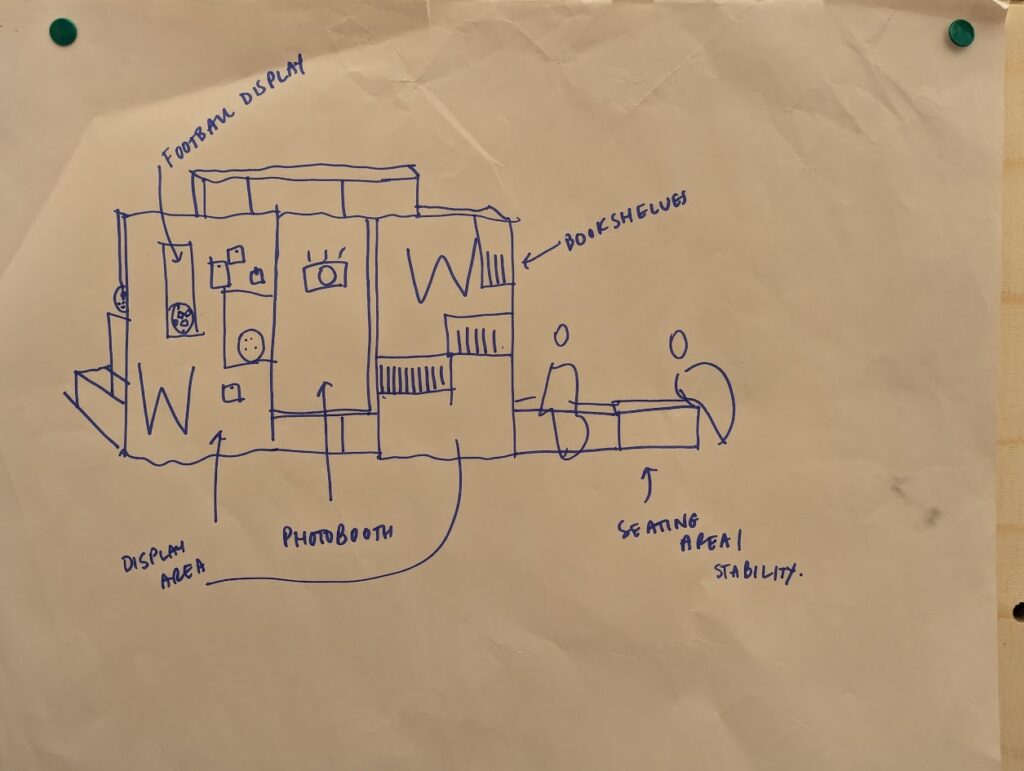 FOOTBALL DISPLAY
BOOKSHELVES
W
W
DISPLAY
AREA
PHOTOBOOTH
SEATING
AREA/
STABILITY.